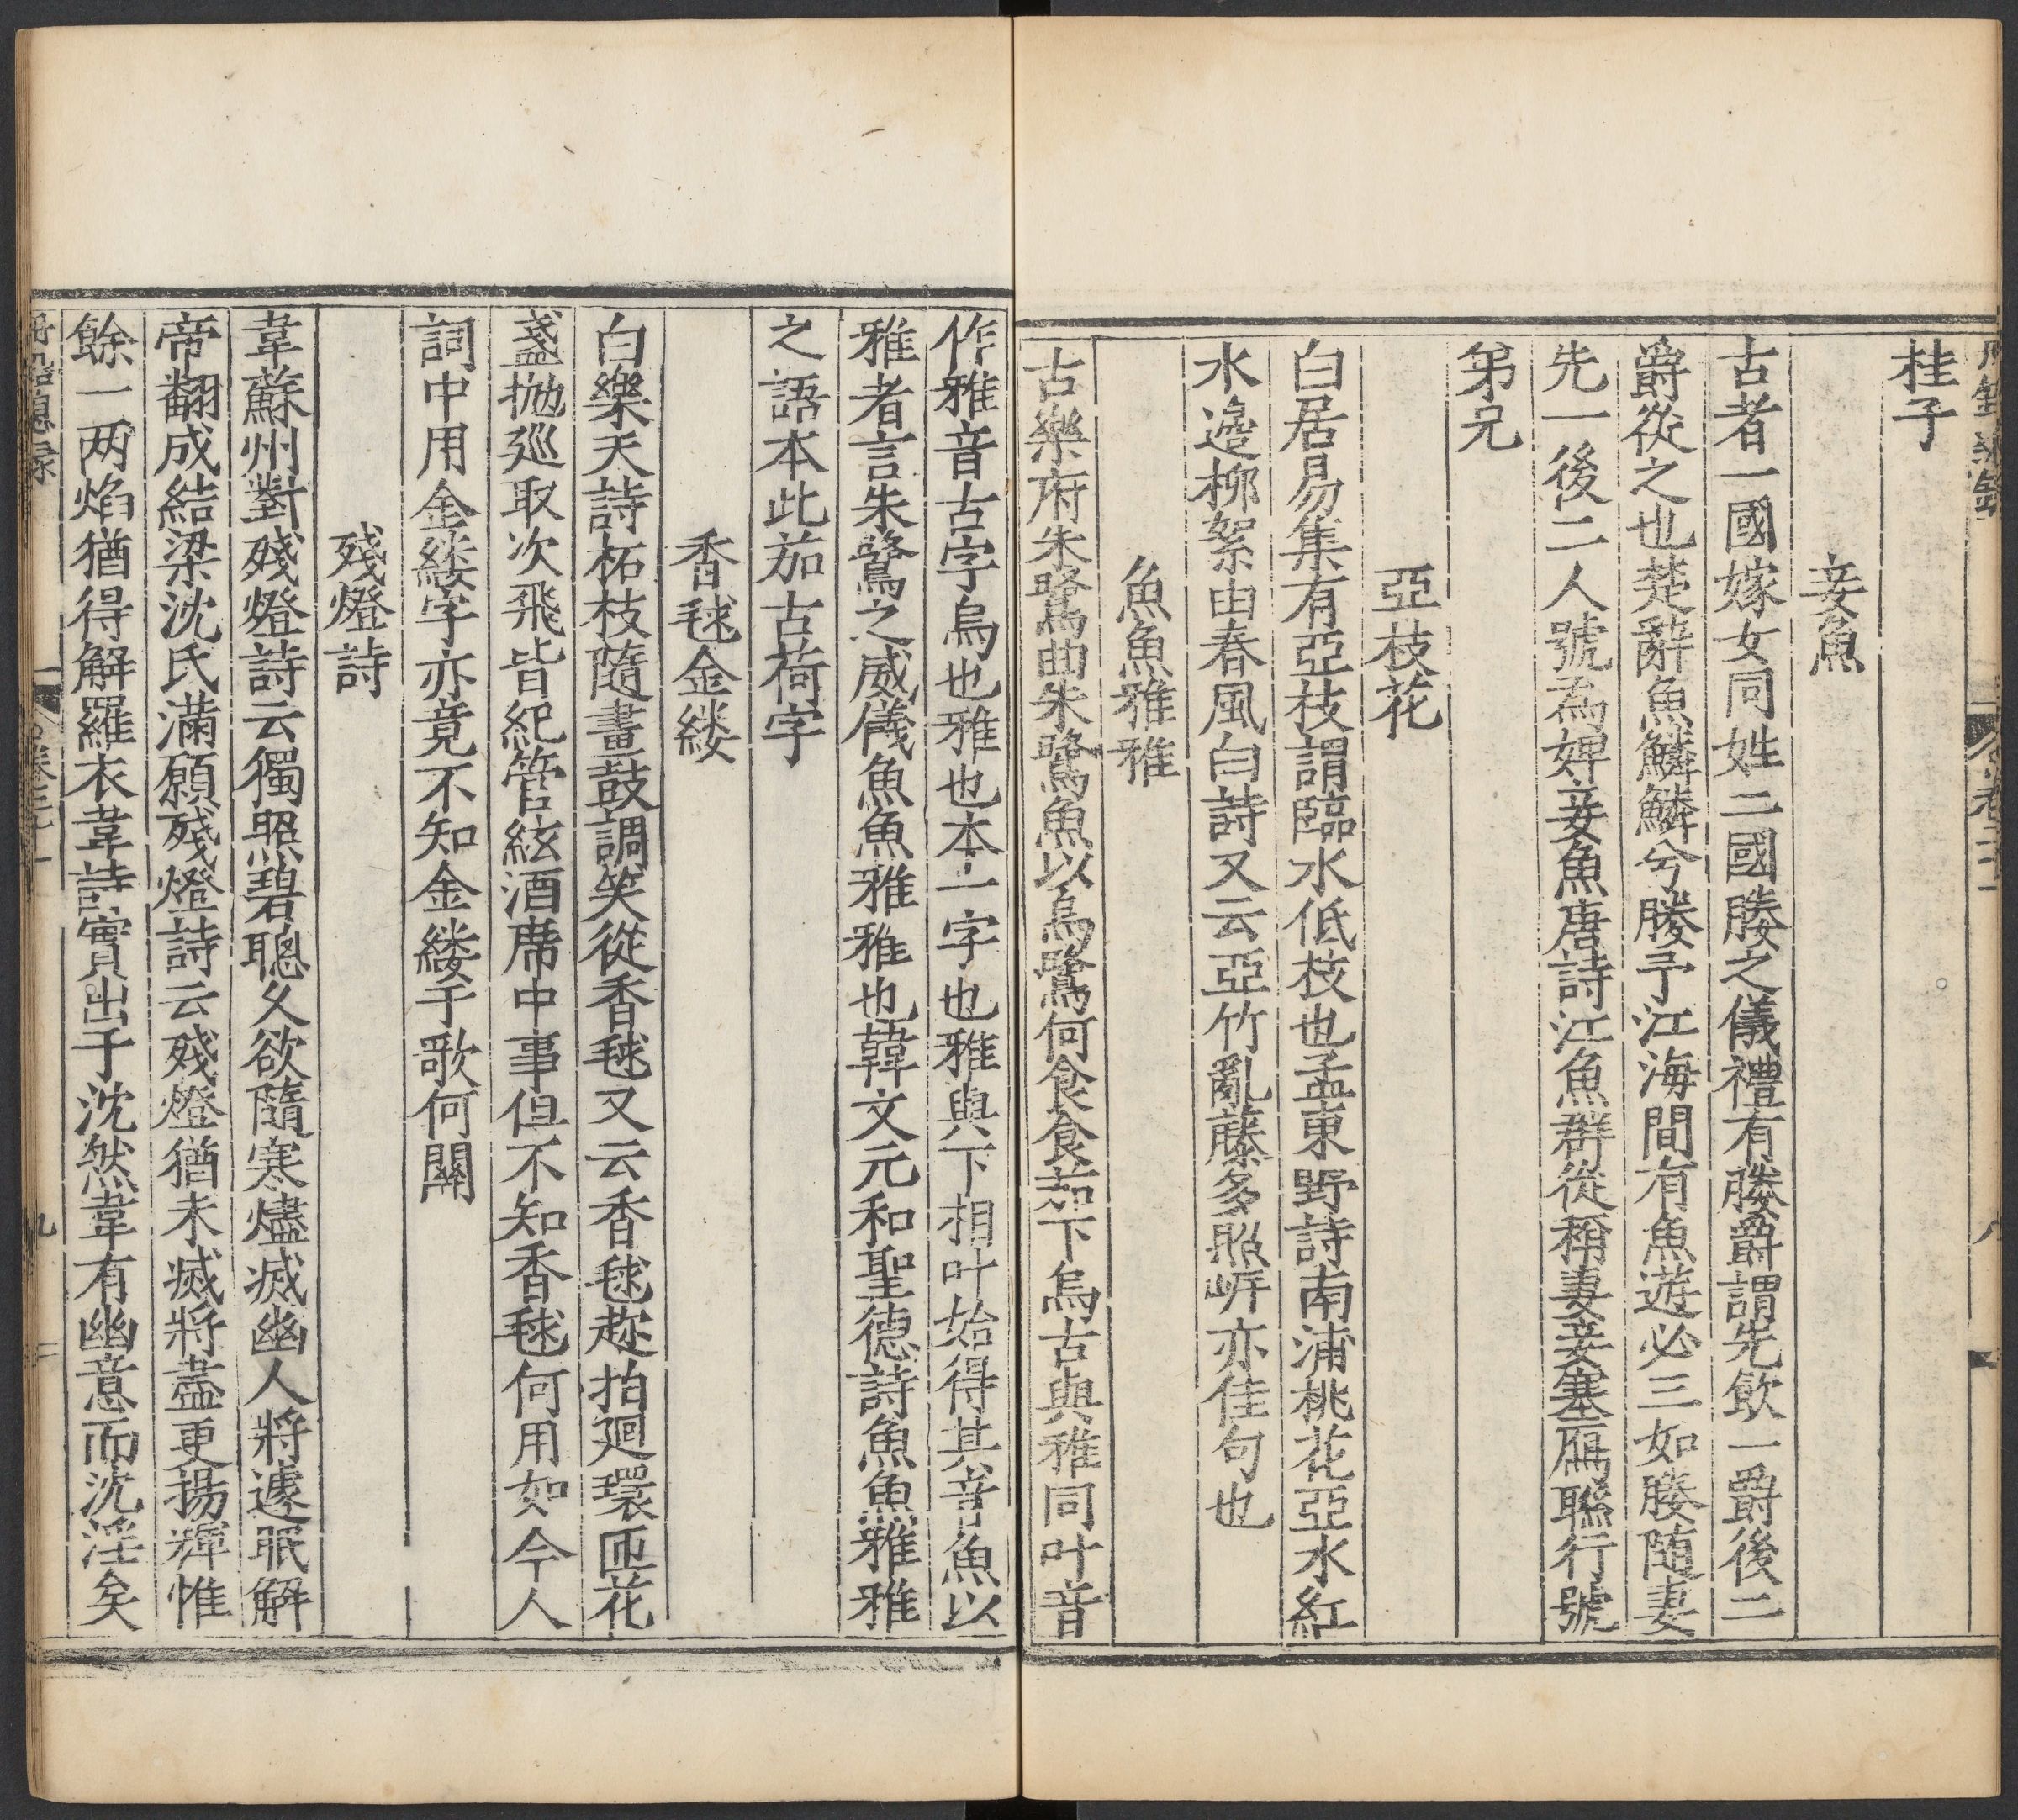 桂子
妾魚
古者一國嫁女同姓二國媵之儀禮有媵爵謂先飲一爵後二
爵從之也楚辭魚鱗鱗兮媵予江海間有魚遊必三如媵隨妻
先一後二人號為婢妾魚唐詩江魚群從稱妻妾塞鴈聯行號
弟兄
亞枝花
白居易集有亞枝謂臨水低枝也孟東野詩南浦桃花亞水紅
水邊柳絮由春風白詩又云亞竹亂藤多照岍亦佳句也
魚魚雅雅
古樂府朱鷺曲朱鷺魚以烏鷺何食食茄下烏古與雅同叶音
作雅音古字烏也雅也本一字也雅與下相叶始得其音魚以
雅者言朱鷺之威儀魚魚雅雅也韓文元和聖德詩魚魚雅雅
之語本此茄古荷字
香毬金縷
白樂天詩柘枝隨畫鼓調笑從香毬又云香毬趂拍廻環匝花
盞抛巡取次飛皆紀管絃酒席中事但不知香毬何用如今人
詞中用金縷字亦竟不知金縷于歌何關
殘燈詩
韋蘇州對殘燈詩云獨照碧聰久欲隨寒燼滅幽人將遽眠解
帝翻成結梁沈氏滿願殘燈詩云殘燈猶未滅將盡更揚輝惟
餘一两焰猶得解羅衣韋詩實出于沈然韋有幽意而沈淫矣
卷二十一
九